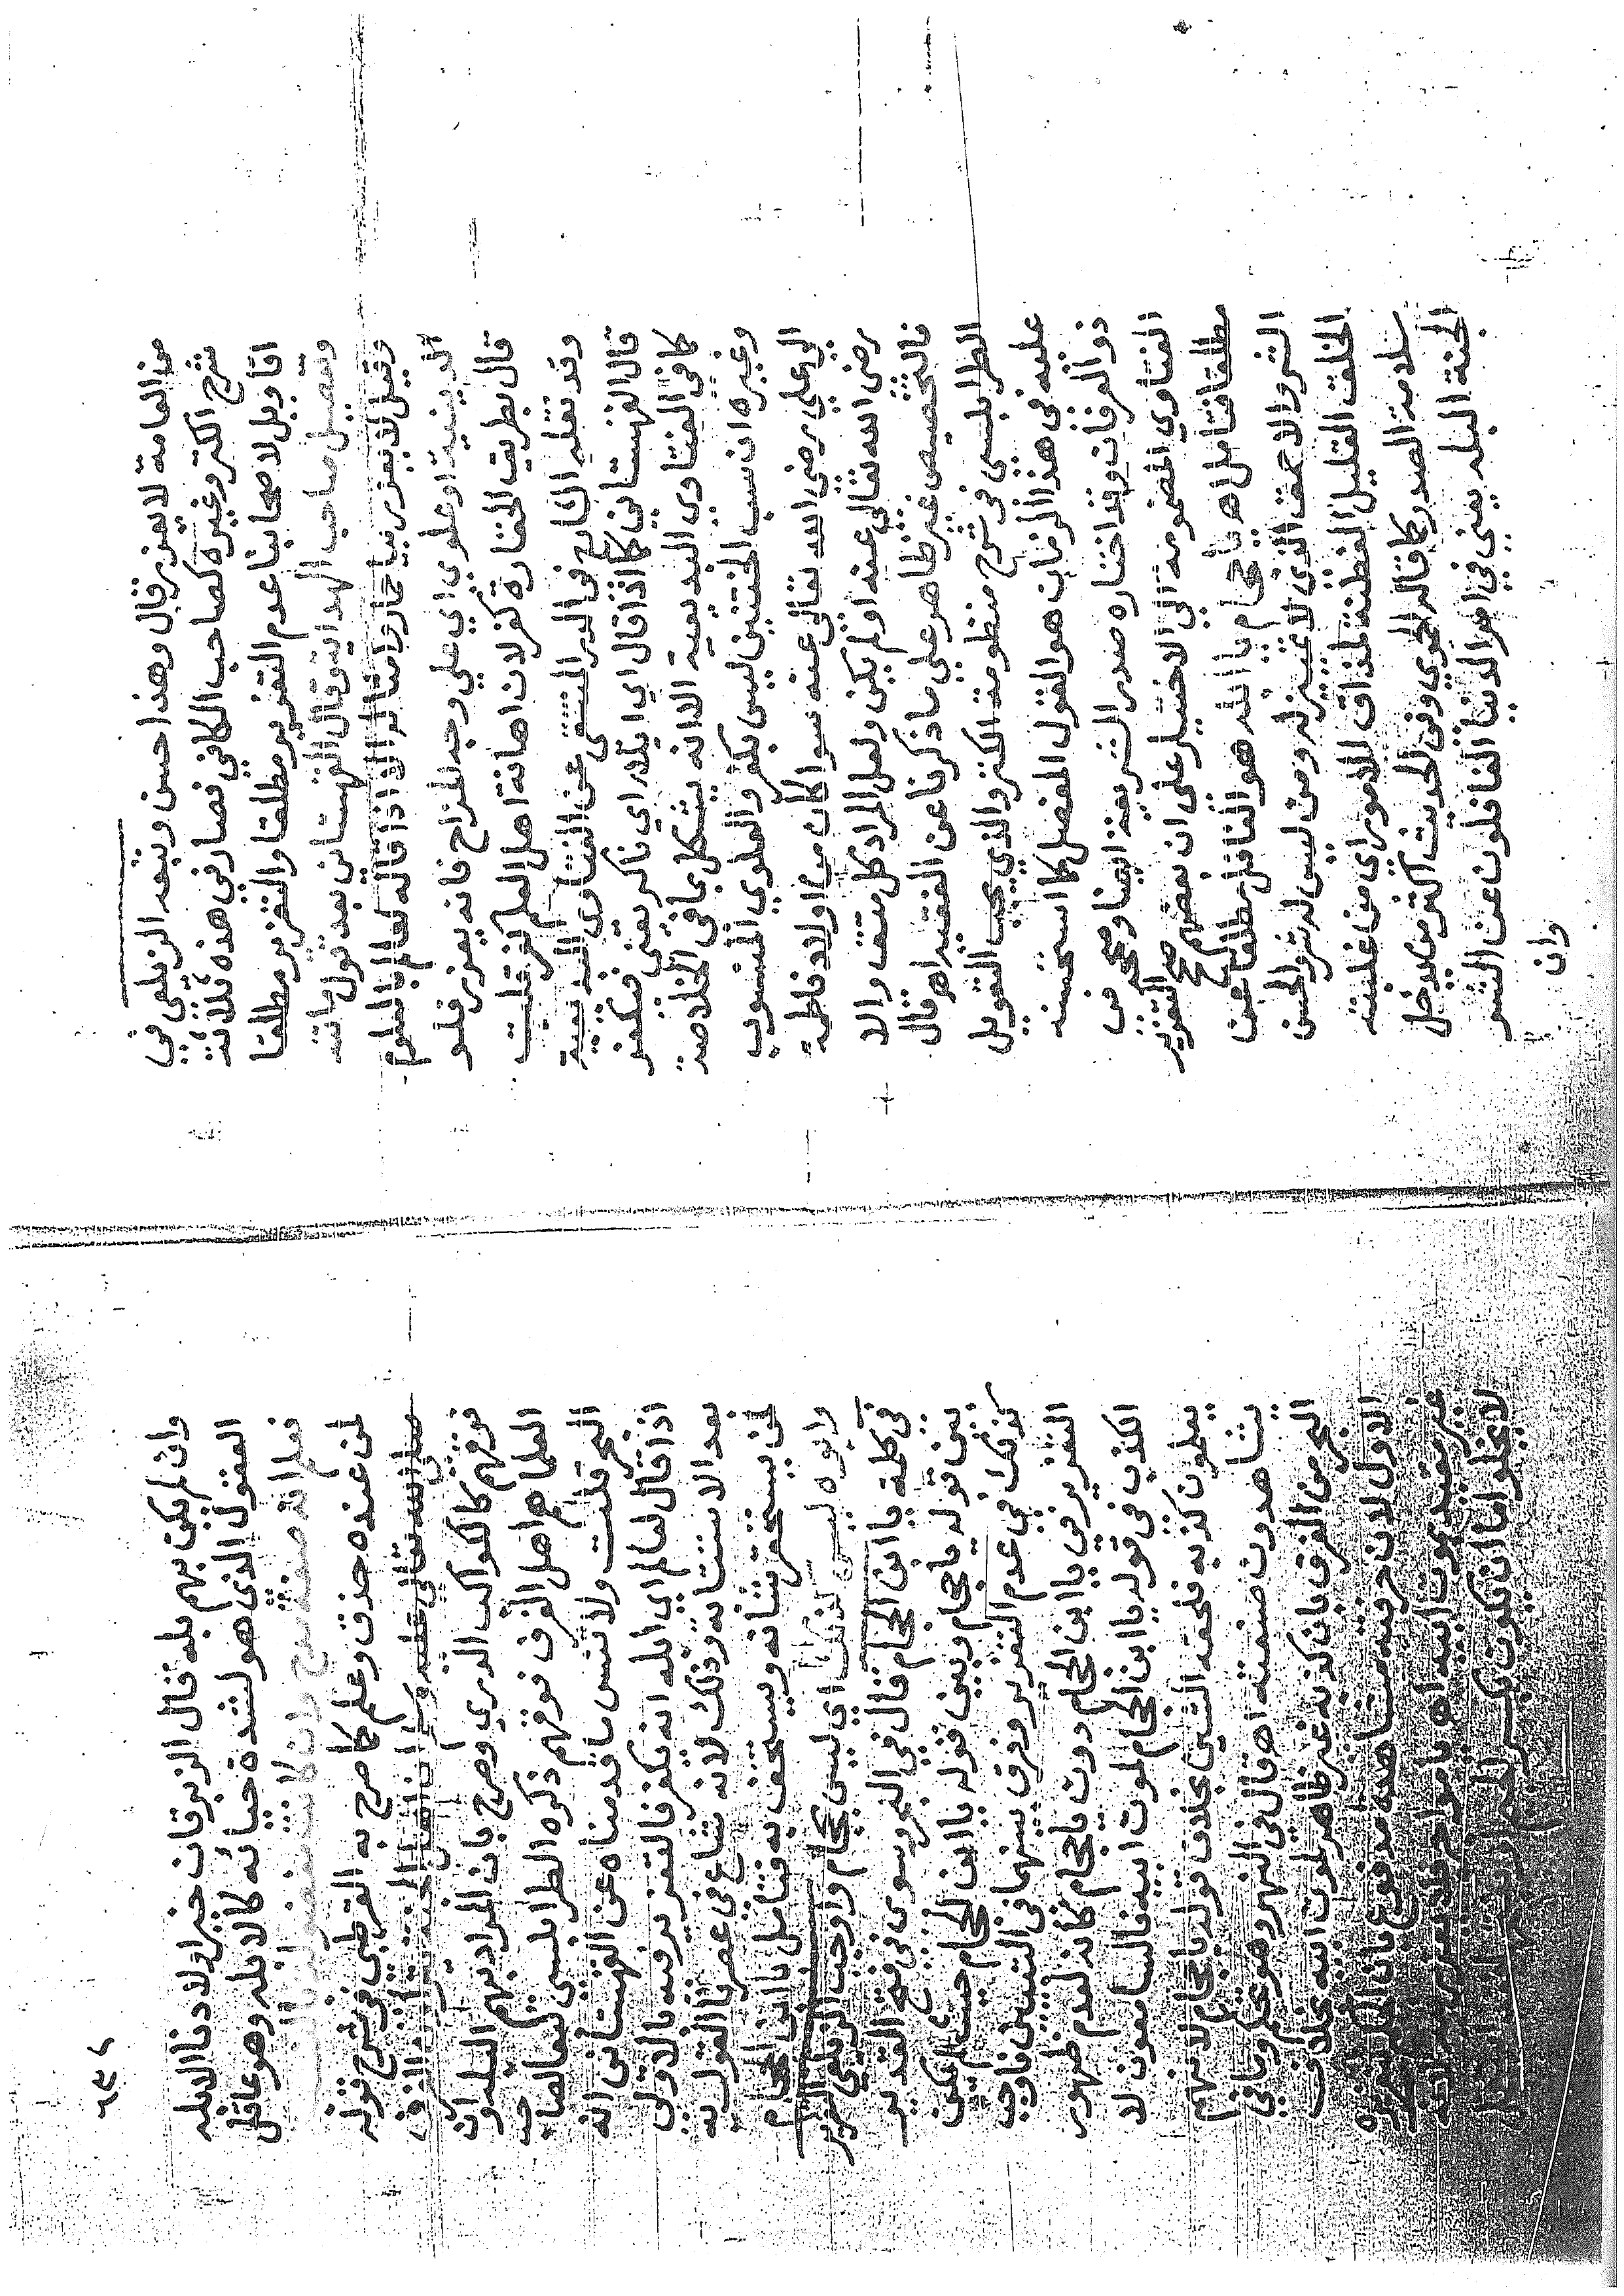 من العامة لا يعزر قال وهذا احسن وتبعه الزيلعي في
شرح الكنز وغيره كصاحب الكافي فصار في هذه ثلاثة
اقاويل لاصحابنا عدم التعزير مطلقا والتعزير مطلقا
وتفصيل صاحب الهداية وقال القهستاني بعد قول ماتنه
وقيل لا يعزر بيا حمار وامثاله الا اذا قاله لعالم بالعلوم
الدينية او علوي اي علي وجه المزاح فانه يعزر فلو
قال بطريق الحقارة كفر لان اهانة اهل العلم كفر قلت
وقد نقله الشارح في الدر المنتقى عن الفتاوى البديعية
قال القهستاني كما اذا قال اي ابله راي ناكر يعني فيكفر
كما في الفتاوى البديعية الا انه يشكل بما في الخلاصة
وغيره ان سب الختنين ليس بكفر والعلوي المنسوب
الي علي رضي الله تعالى عنه سواكان من اولاد فاطمة
رضي الله تعالي عنها اولم يكن ولعل المراد كل متقى والا
فالتخصيص غير ظاهر علي ما ذكرنا عن الفقيد اهـ قال
الطرابلسي في شرح منظومة الكنز والذي يجب التعويل
عليه في هذا الزمان هو القول المفصل كما استحسنه
ذوا العرفان وقد اختاره صدر الشريعة ايضا وصححه في
الفتاوي المضمومة الي الاختيار علي ان بعضهم صحح التعزير
مطلقا فتامل اهـ يا حجام يا ابله هو الغافل مطلقا عن
الشر والاحمق الذي لا تمييز له ومن ليس له شر والحسن
الخلق القليل الفطنة لمداق الامور اي من غلبته
سلامة الصدر كما قاله الحموي وفي الحديث اكثر من يدخل
الجنة البله يعني في امر الدنيا الغافلون عن الشر
وان
٦٣٤
وان لم يكن بهم بله قال الزبرقان خير اولادنا الابله
العقول الذي هو لشدة حيائه كالابله وهو عاقل
لمن عنده حذق وعلم كما صرح به القرطبي في شرح قوله
صلى الله تعالى عليه وسلم ان اهل الجنة
فوقهم كالكواكب الدري وصرح بان المراد بهم البلداون
العلما هم اهل الغرف فوقهم ذكره الطرابلسي تبعا لصاحب
البحر قلت ولا تنس ما قدمناه عن القهستاني انه
اذا قال لعالم اي ابله انه يكفر فالتعزير فيه بالاولى
بعد الاستتابة وذلك لانه شاع في عصرنا القول به
لمن يستحقر شانه ويستخف به فتامل يا ابن الحجام
وابوه ليس كذلك اي ليس بحجام واوجب الزيلعي التعزير
في كلمة يا ابن الحجام قال في البحر وسوى في فتح القدير
بين قوله يا حجام وبين قوله يا ابن الحجام حيث لم يكن
كذلك في عدم التعزير وفرق بينهما في التبيين فاوجب
التعزير في يا ابن الحجام دون يا حجام كانه لعدم ظهور
الكذب في قوله يا ابن الحجام لموت ابيه فالسامعون لا
يعلمون كذبه فلحقه الشين بخلاف قوله يا حجام لانهم
يشاهدون صنعته اهـ قال في النهر وهو تحكم وما في
البحر من الفرق بان كذبه غير ظاهر لموت ابيه بخلاف
الاول لان حرفته مشاهدة مدفوع بان الحكم بتعزيره
غير مقيد بموت ابيه اهـ
لا يخلو اما ان يكون بكسر